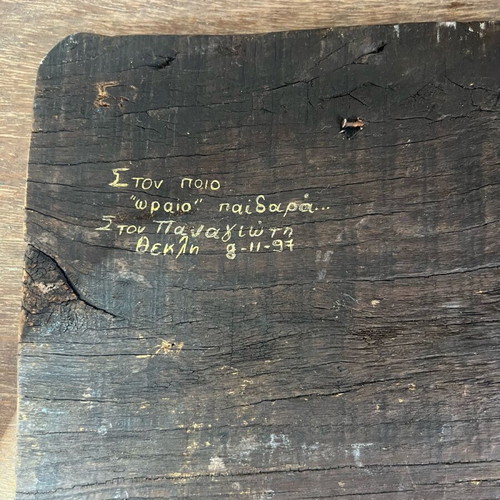 Στον ποιο
"ωραίο" παίδαρά...
Στον Παναγιώτη
Θεκλη 8-11-97